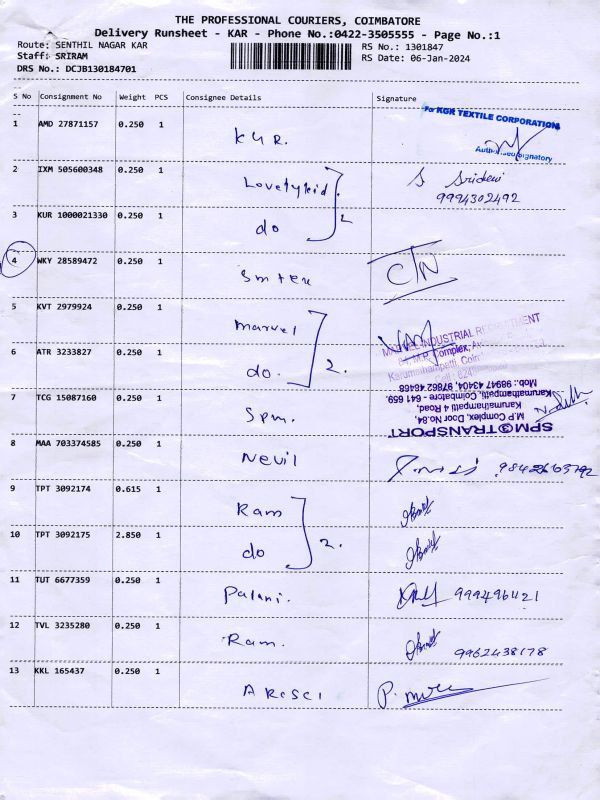 THE PROFESSIONAL COURIERS, COIMBATORE
Delivery Runsheet - KAR - Phone No.:0422-3505555 - Page No.:1
Route: SENTHIL NAGAR KAR
RS No.: 1301847
Staff: SRIRAM
RS Date: 06-Jan-2024
DRS No.: DCJB130184701
S No Consignment No Weight PCS Consignee Details Signature
For KGR TEXTILE CORPORATION
1 AMD 27871157 0.250 1 KGR.
Authorised Signatory
2 IXM 505600348 0.250 1 Lovelykid S Sridevi
9994302492
3 KUR 1000021330 0.250 1 do 2
4 WKY 28589472 0.250 1 C/N
5 KVT 2979924 0.250 1 marvel
MARVEL INDUSTRIAL RECRUITMENT
M.P. Complex,
Karumathampatti,
6 ATR 3233827 0.250 1 do. 2.
7 TCG 15087160 0.250 1 Spm.
SPM TRANSPORT
M.P Complex, Door No.84,
Karumathampatti 4 Road,
Karumathampatti, Coimbatore - 641 659.
Mob.: 98947 43404, 97862 48468
8 MAA 703374585 0.250 1 Nevil
9 TPT 3092174 0.615 1 Ram
10 TPT 3092175 2.850 1 do 2.
11 TUT 6677359 0.250 1 Palani.
12 TVL 3235280 0.250 1 Ram. 9962438178
13 KKL 165437 0.250 1